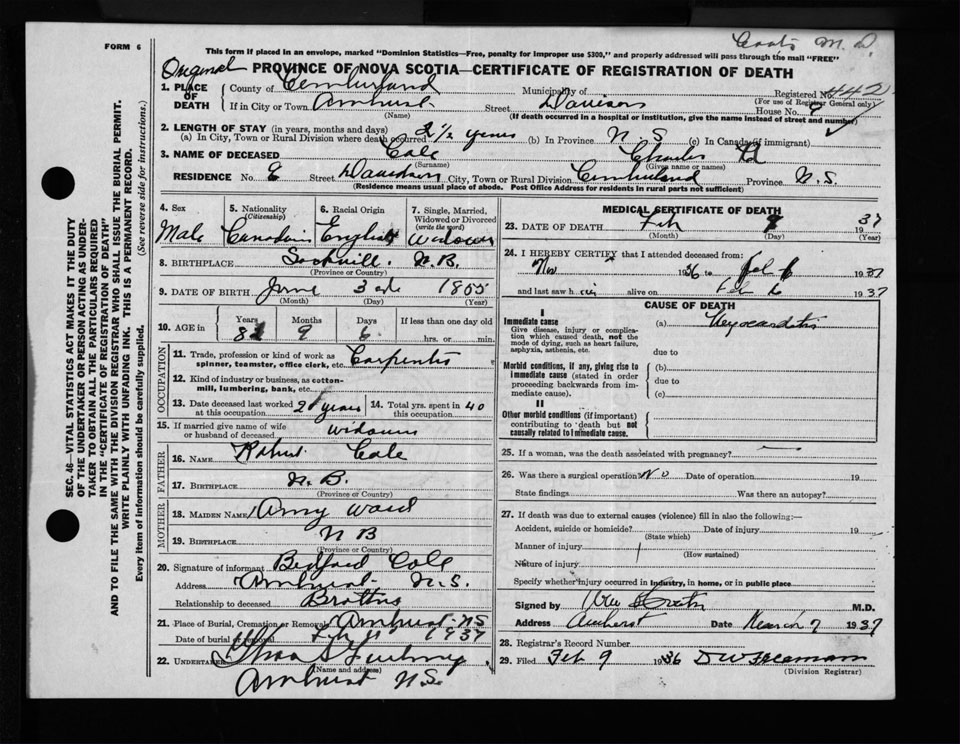 FORM 6
This form if placed in an envelope, marked "Dominion Statistics—Free, penalty for improper use $300," and properly addressed will pass through the mail "FREE"
Coats M.D.
Original
PROVINCE OF NOVA SCOTIA—CERTIFICATE OF REGISTRATION OF DEATH
SEC. 46—VITAL STATISTICS ACT MAKES IT THE DUTY
OF THE UNDERTAKER OR PERSON ACTING AS UNDER-
TAKER TO OBTAIN ALL THE PARTICULARS REQUIRED
IN THE "CERTIFICATE OF REGISTRATION OF DEATH"
AND TO FILE THE SAME WITH THE DIVISION REGISTRAR WHO SHALL ISSUE THE BURIAL PERMIT.
WRITE PLAINLY WITH UNFADING INK. THIS IS A PERMANENT RECORD.
Every item of information should be carefully supplied.
(See reverse side for instructions.)
1. PLACE OF DEATH
County of Cumberland Municipality of Registered No. 442
(For use of Registrar General only)
If in City or Town Amherst Street Davison House No. 8
(Name)
(If death occurred in a hospital or institution, give the name instead of street and number)
2. LENGTH OF STAY (in years, months and days)
(a) In City, Town or Rural Division where death occurred 2 1/2 years (b) In Province N.S (c) In Canada (if immigrant)
3. NAME OF DECEASED Cole Charles Ed
(Surname) (Given name or names)
RESIDENCE No. 8 Street Davidson City, Town or Rural Division Cumberland Province N.S.
(Residence means usual place of abode. Post Office Address for residents in rural parts not sufficient)
4. Sex
Male
5. Nationality
(Citizenship)
Canadian
6. Racial Origin
English
7. Single, Married,
Widowed or Divorced
(write the word)
Widower
8. BIRTHPLACE Sackville. N.B.
(Province or Country)
9. DATE OF BIRTH June 3rd 1855
(Month) (Day) (Year)
10. AGE in
Years Months Days If less than one day old
81 9 6 hrs. or min.
OCCUPATION
11. Trade, profession or kind of work as
spinner, teamster, office clerk, etc. Carpenter
12. Kind of industry or business, as cotton-
mill, lumbering, bank, etc.
13. Date deceased last worked
at this occupation 2 years
14. Total yrs. spent in
this occupation 40
15. If married give name of wife
or husband of deceased widower
FATHER
16. NAME Robert Cole
17. BIRTHPLACE N.B.
(Province or Country)
MOTHER
18. MAIDEN NAME Amy Ward
19. BIRTHPLACE N B
(Province or Country)
20. Signature of informant Bedford Cole
Address Amherst N.S.
Relationship to deceased Brother
21. Place of Burial, Cremation or Removal Amherst NS
Date of burial or removal Feb 11 1937
22. UNDERTAKER
(Name and address)
Amherst N.S.
MEDICAL CERTIFICATE OF DEATH
23. DATE OF DEATH Feb 9 1937
(Month) (Day) (Year)
24. I HEREBY CERTIFY that I attended deceased from:
Nov 1936 to Feb 6 1937
and last saw him alive on Feb 6 1937
CAUSE OF DEATH
I
Immediate cause
Give disease, injury or complica-
tion which caused death, not the
mode of dying, such as heart failure,
asphyxia, asthenia, etc.
(a) Myocarditis
due to
Morbid conditions, if any, giving rise to
immediate cause (stated in order
proceeding backwards from im-
mediate cause).
(b)
due to
(c)
II
Other morbid conditions (if important)
contributing to death but not
causally related to immediate cause.
25. If a woman, was the death associated with pregnancy?
26. Was there a surgical operation? No Date of operation 19
State findings Was there an autopsy?
27. If death was due to external causes (violence) fill in also the following:—
Accident, suicide or homicide? Date of injury 19
(State which)
Manner of injury
(How sustained)
Nature of injury
Specify whether injury occurred in industry, in home, or in public place
Signed by M.D.
Address Amherst Date March 7 1937
28. Registrar's Record Number
29. Filed Feb 9 1936 D W Freeman
(Division Registrar)